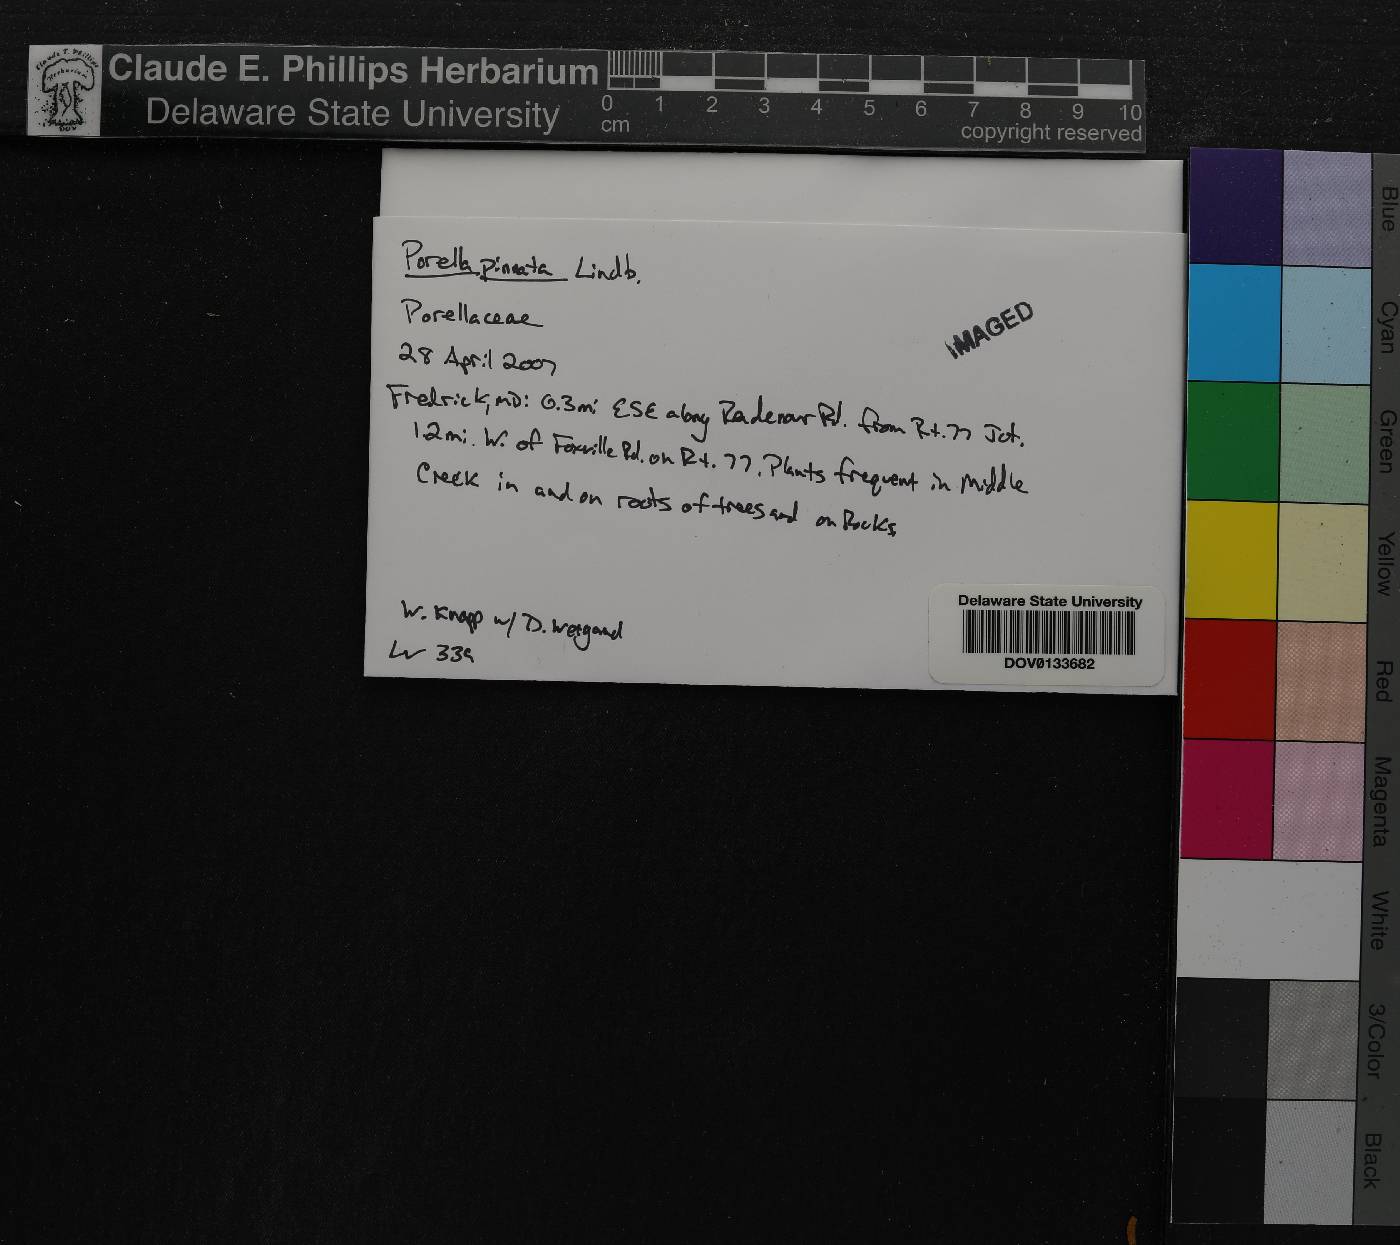 Claude E. Phillips Herbarium
Delaware State University
0 1 2 3 4 5 6 7 8 9 10
cm
copyright reserved
Porella pinnata Lindb.
Porellaceae
28 April 2007
Fredrick, MD: 0.3mi ESE along Radenour Rd. from Rt. 77 Jct.
1.2 mi. W. of Foxville Rd. on Rt. 77. Plants frequent in Middle
Creek in and on roots of trees and on Rocks
W. Knapp w/ D. Weigand
339
IMAGED
Delaware State University
DOV0133682
Blue
Cyan
Green
Yellow
Red
Magenta
White
3/Color
Black